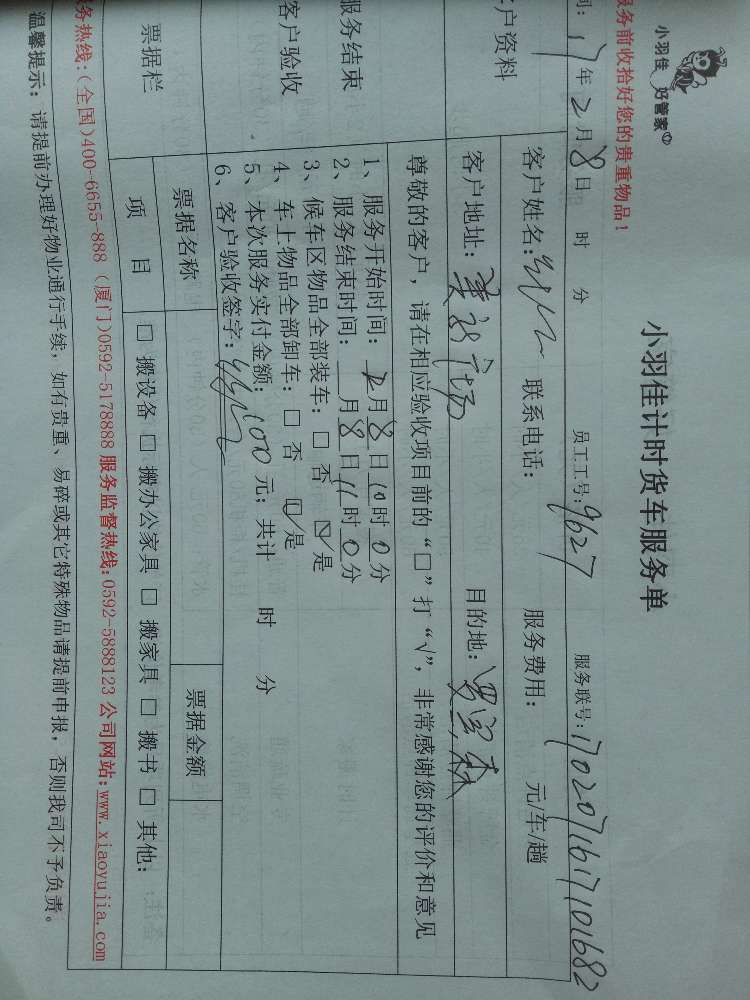 小羽佳 好管家
小羽佳计时货车服务单
服务前收拾好您的贵重物品！
间：17年2月8日 时 分 员工工号：9627 服务联号：1702071617101682
客户资料
客户姓名： 联系电话： 服务费用： 元/车/趟
客户地址： 目的地：
尊敬的客户，请在相应验收项目前的“□”打“√”，非常感谢您的评价和意见
服务结束
客户验收
1、服务开始时间：2月8日10时0分
2、服务结束时间： 月8日11时0分
3、候车区物品全部装车：□ 否 ☑是
4、车上物品全部卸车：□ 否 ☑是
5、本次服务实付金额：100元；共计 时 分
6、客户验收签字：
票据栏
票据名称 票据金额
项 目 □ 搬设备 □ 搬办公家具 □ 搬家具 □ 搬书 □ 其他：
务热线：（全国）400-6655-888（厦门）0592-5178888 服务监督热线：0592-5888123 公司网站：www.xiaoyujia.com
温馨提示：请提前办理好物业通行手续，如有贵重、易碎或其它特殊物品请提前申报，否则我司不予负责。